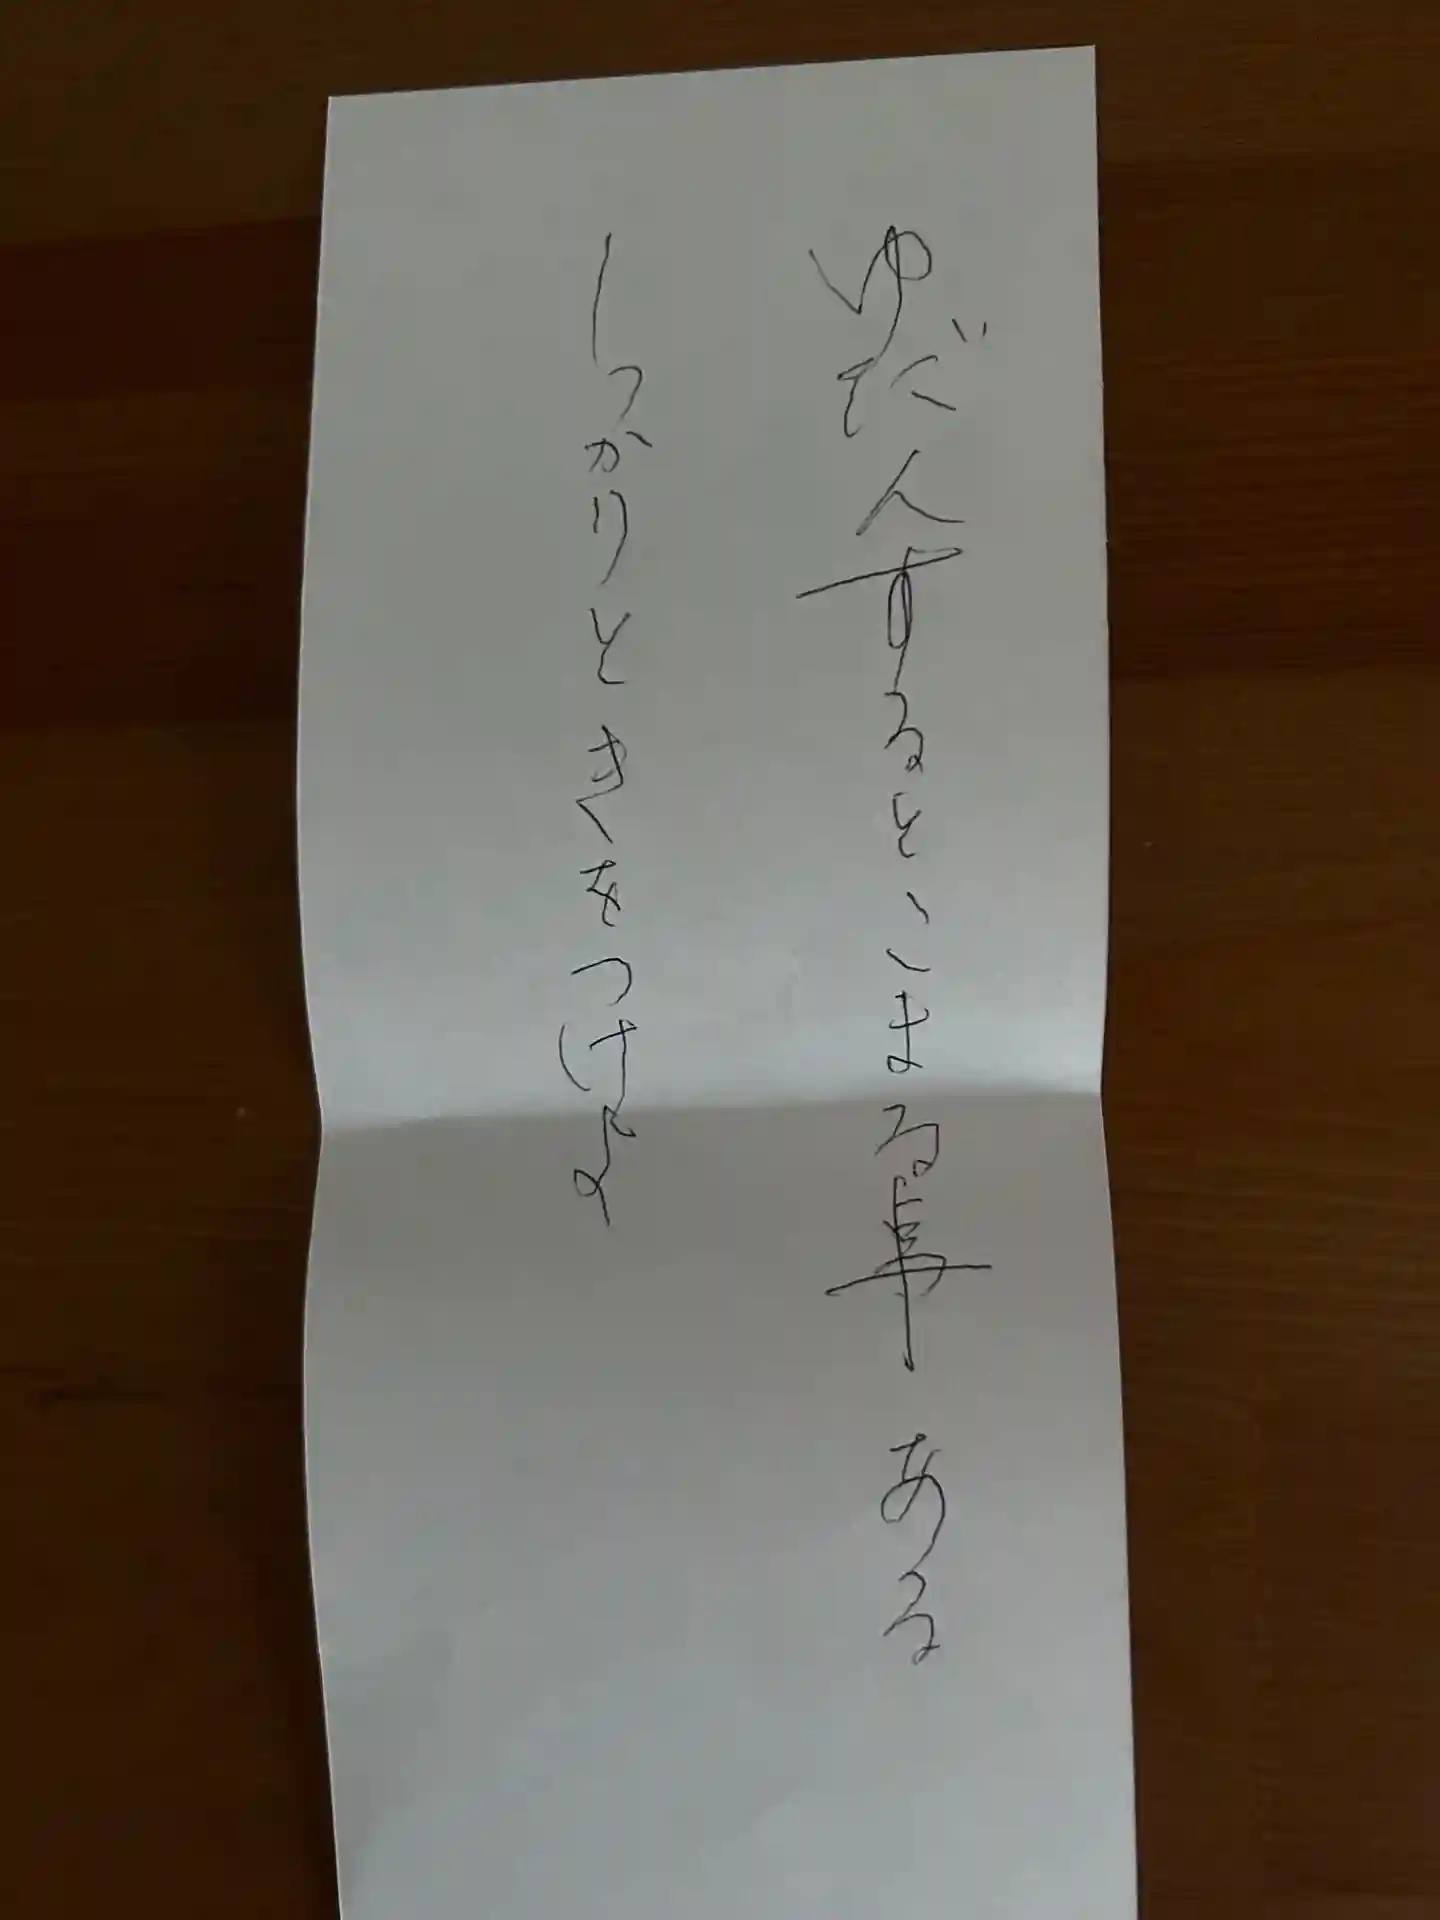 ゆだんするとこまる事ある
しっかりときをつけろよ